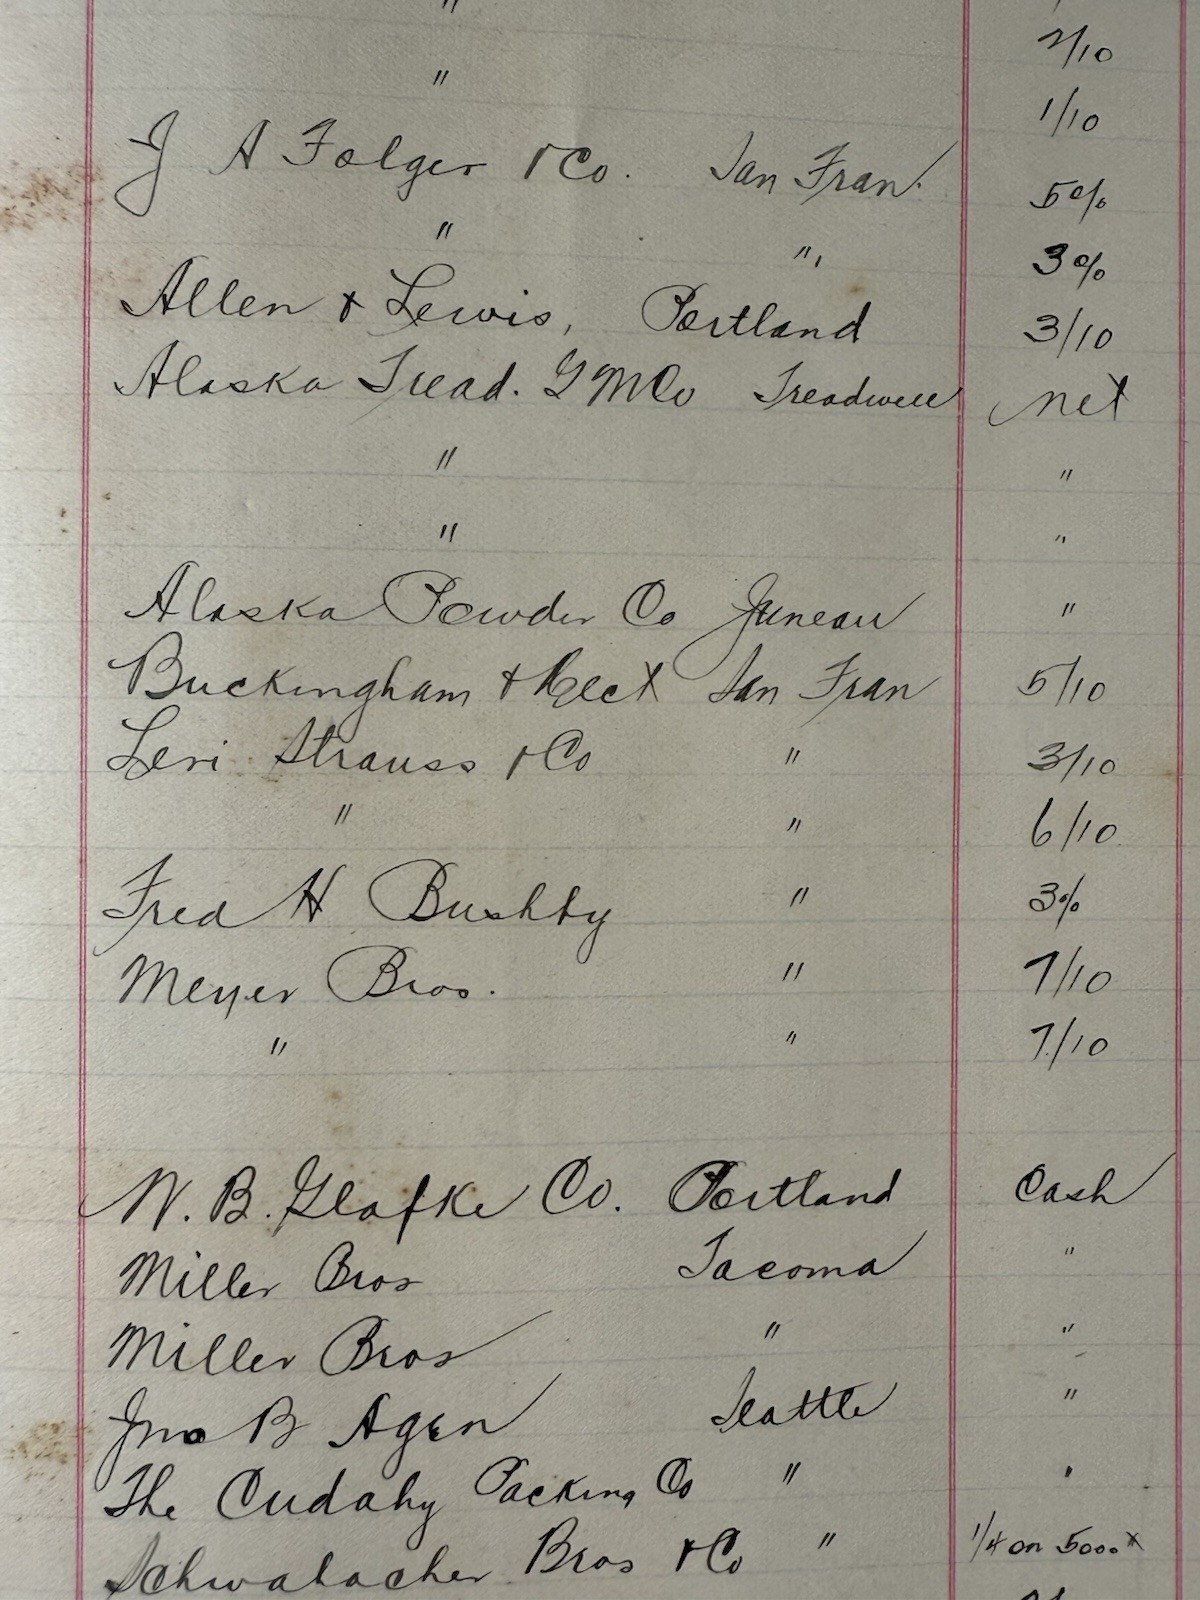 "
" 2/10
" 1/10
J A Folger & Co. San Fran. 5%
" " 3%
Allen & Lewis, Portland 3/10
Alaska Tread. G M Co Treadwell net
" "
" "
Alaska Powder Co Juneau "
Buckingham & Hecht San Fran 5/10
Levi Strauss & Co " 3/10
" " 6/10
Fred H Bushby " 3%
Meyer Bros. " 7/10
" " 7/10
W. B. Glafke Co. Portland Cash
Miller Bros Tacoma "
Miller Bros " "
Jno B Agen Seattle "
The Cudahy Packing Co " "
Schwabacher Bros & Co " 1/4 on 5000